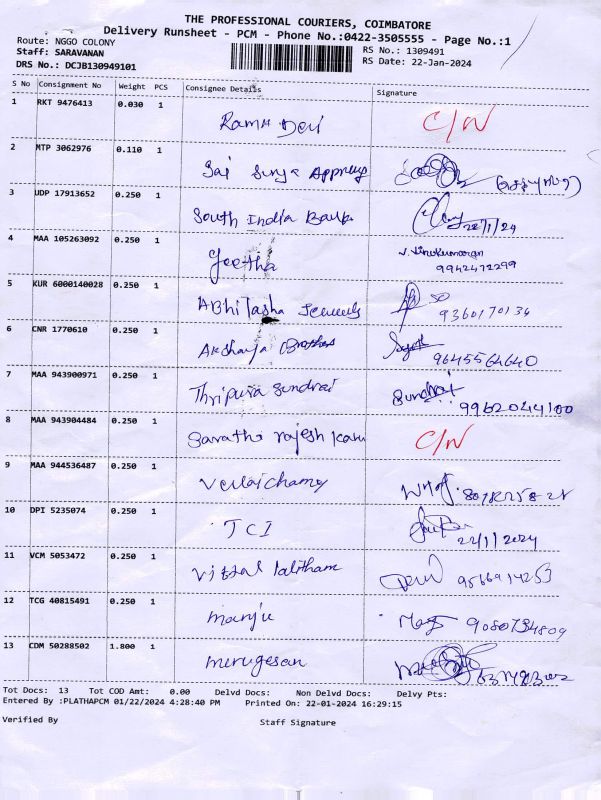 THE PROFESSIONAL COURIERS, COIMBATORE
Delivery Runsheet - PCM - Phone No.:0422-3505555 - Page No.:1
Route: NGGO COLONY
RS No.: 1309491
Staff: SARAVANAN
RS Date: 22-Jan-2024
DRS No.: DCJB130949101
S No Consignment No Weight PCS Consignee Details Signature
1 RKT 9476413 0.030 1 Rama Devi C/N
2 MTP 3062976 0.110 1 Sai Surya
3 UDP 17913652 0.250 1 South India Bank 22/1/24
4 MAA 105263092 0.250 1 Geetha
9942472299
5 KUR 6000140028 0.250 1 Abhilasha Jewels 9360170134
6 CNR 1770610 0.250 1 Akshaya Brothers 9645564640
7 MAA 943900971 0.250 1 Thripura Sundrai Sundrai 9962044100
8 MAA 943904484 0.250 1 Sarathi rajesh C/N
9 MAA 944536487 0.250 1 Vellaichamy
10 DPI 5235074 0.250 1 TCI 22/1/2024
11 VCM 5053472 0.250 1 9566914253
12 TCG 40815491 0.250 1 manju 9080734809
13 CDM 50288502 1.800 1 murugesan
Tot Docs: 13 Tot COD Amt: 0.00 Delvd Docs: Non Delvd Docs: Delvy Pts:
Entered By :PLATHAPCM 01/22/2024 4:28:40 PM Printed On: 22-01-2024 16:29:15
Verified By Staff Signature